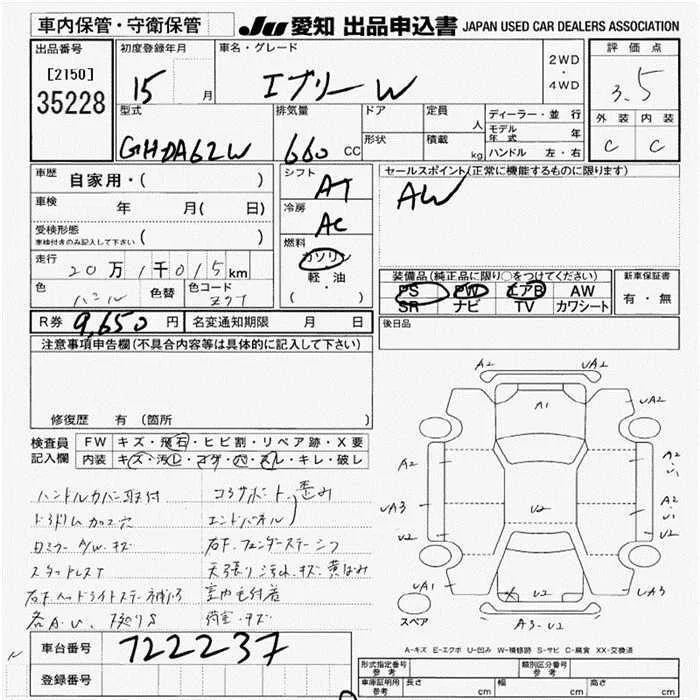 車内保管・守衛保管 JU 愛知 出品申込書 JAPAN USED CAR DEALERS ASSOCIATION
出品番号 初度登録年月 車名・グレード 2WD・4WD 評価点
[2150] 15 月 エブリーW 3.5
35228 外装 内装
型式 排気量 ドア 定員 人 ディーラー・並行
形状 積載 kg モデル年式 年
GHDA62W 660 CC ハンドル 左・右 C C
車歴 自家用・( ) シフト AT セールスポイント(正常に機能するものに限ります)
車検 年 月( 日) 冷房 AC AW
受検形態 ( )
車検付きのみ記入して下さい
燃料 ガソリン
走行 20万1千015km 軽・油 装備品(純正品に限り○をつけてください) 新車保証書
色 色替 色コード Z77 ( ) PS PW エアB AW 有・無
SR ナビ TV カワシート
R券 9,650円 名変通知期限 月 日 後日品
注意事項申告欄(不具合内容等は具体的に記入して下さい)
修復歴 有(箇所
検査員 FW キズ・飛石・ヒビ割・リペア跡・X要
記入欄 内装 キズ・汚レ・コゲ・穴・スレ・キレ・破レ
ハンドルカバー取付 コアサポート、歪み
エンドパネル
スタッドレス 天張り汚れ、キズ、黄ばみ
室内毛付着
荷室・キズ
A2 UA2
A1 UA2
A2 A2・U1
UA3 U2 A2・U1
U2 U2
UA1 UA1
X U2
スペア A3-U2
A-キズ E-エクボ U-凹み W-補修跡 S-サビ C-腐食 XX-交換済
車台番号 722237
登録番号
形式指定番号 参考 類別区分番号 参考
車庫証明用 参考 長さ cm 幅 cm 高さ cm